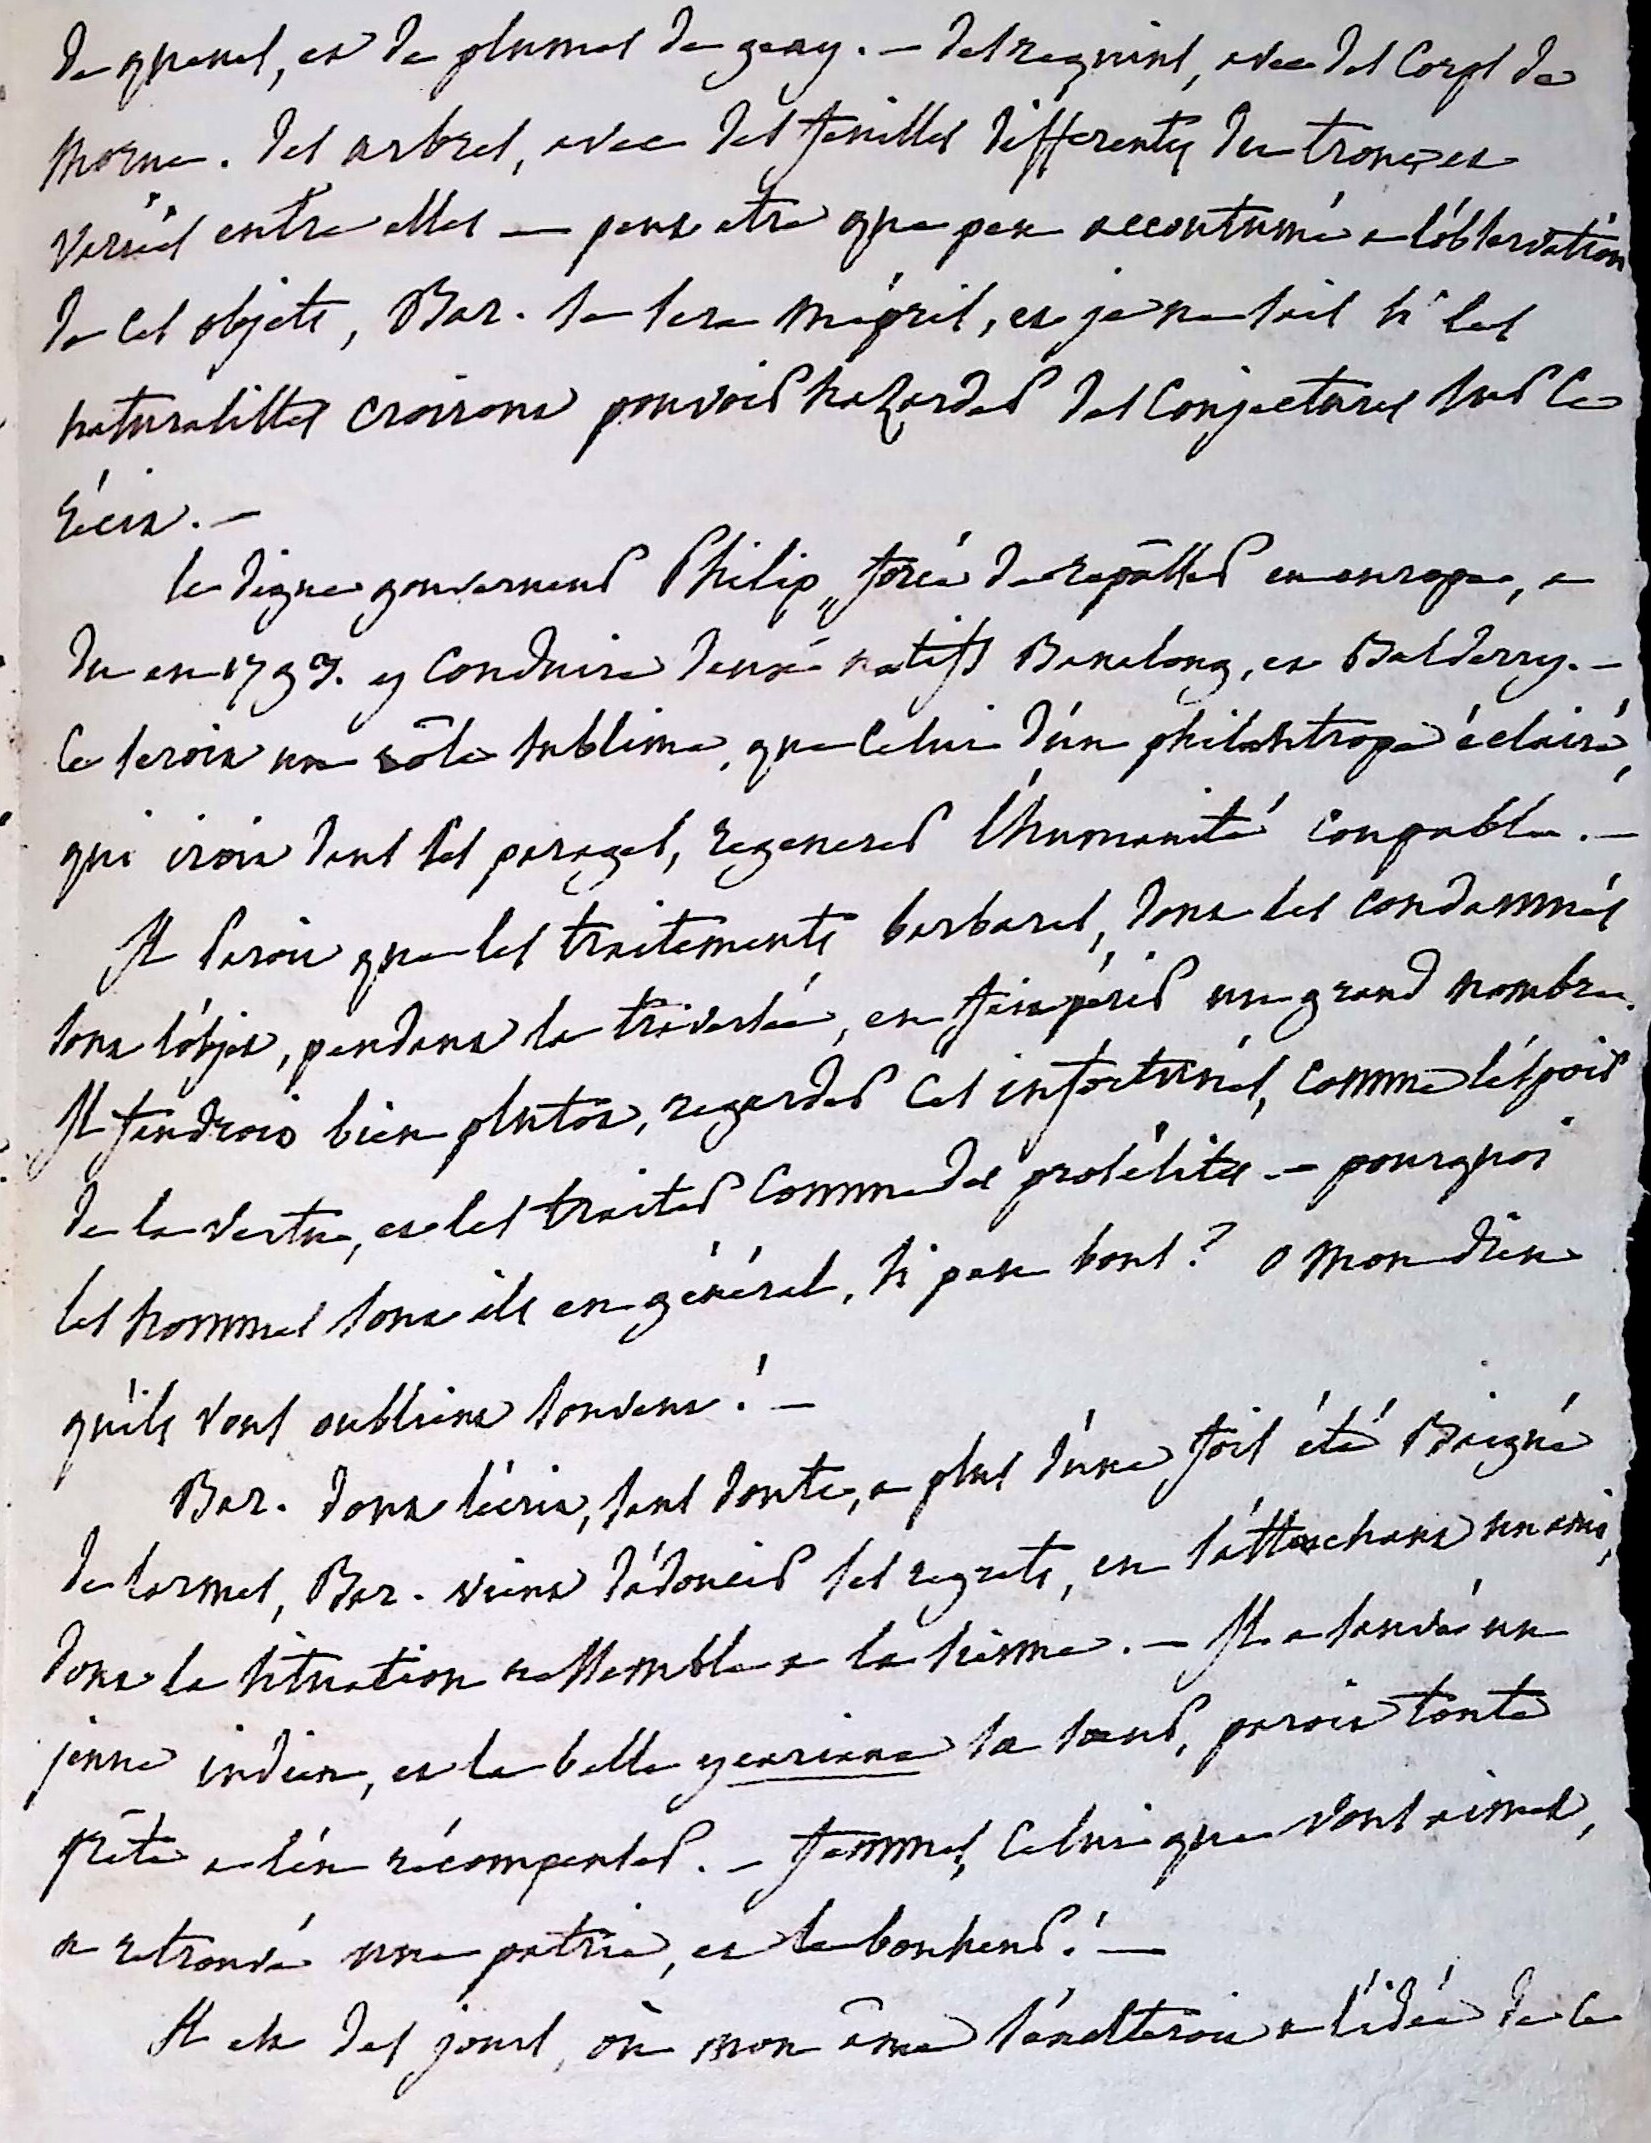 de queues, et de plumes de geay. — des requins, avec des corps de
morue. des arbres, avec des feuilles differentes du tronc, et
variées entre elles — peut etre que peu accoutumé a l'óbservation
de ces objets, Bar. se sera mépris, et je ne sais si les
naturalistes croiront pouvoir hazarder des conjectures sur ce
récit. —
le digne gouverneur Philip, forcé de repasser en europe, a
du en 1793. y conduire deux natifs Banelong, et Balderry. —
ce seroit un rôle sublime, que celui d'ún philantrope éclairé,
qui iroit dans ses parages, regenerer l'húmanité coupable. —
Il paroit que les traitements barbares, dont les condamnés
sont l'óbjet, pendant la traversée, en fait périr un grand nombre.
Il faudroit bien plutot, regarder ces infortunés, comme l'éspoir
de la vertu, et les traiter comme des prosélites. — pourquoi
les hommes sont ils en général, si peu bons? o mon dieu
qu'ils vous oublient souvent! —
Bar. dont l'écrit, sans doute, a plus d'úne fois été Baigné
de larmes, Bar. vient d'ádoucir ses regrets, en s'áttachant un ami,
dont la situation ressemble a la sienne. — Il a sauvé un
jeune indien, et la belle yeariana sa sœur, paroit toute
prête a l'én récompenser. — femmes, celui que vous aimes,
a retrouvé une patrie, et le bonheur! —
Il est des jours, où mon âme s'éxalteroit a l'idée de ce